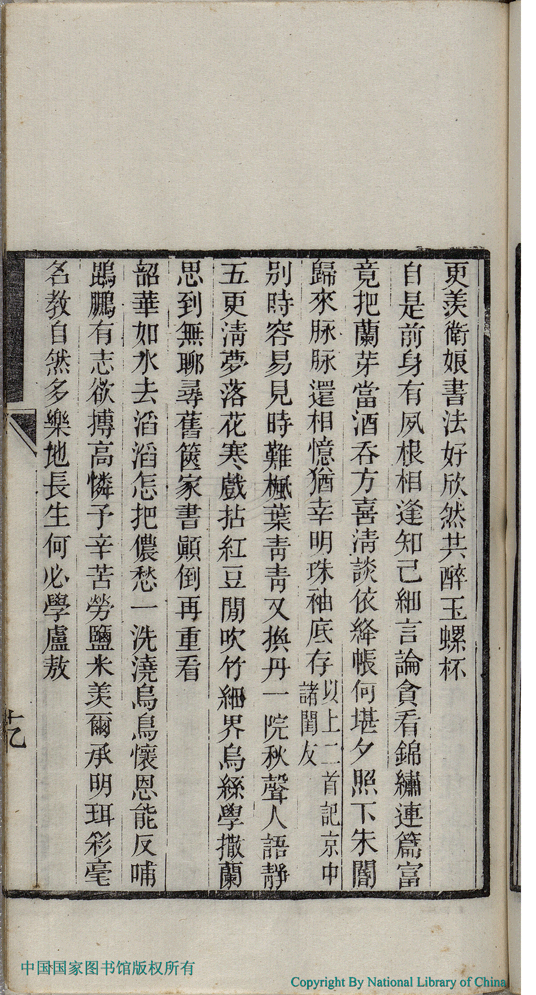 更羨衛娘書法好欣然共醉玉螺杯
自是前身有夙根相逢知己細言論貪看錦繡連篇富
竟把蘭芽當酒吞方喜清談依絳帳何堪夕照下朱閽
歸來脉脉還相憶猶幸明珠袖底存以上二首記京中諸閨友
別時容易見時難楓葉青青又換丹一院秋聲人語靜
五更清夢落花寒戲拈紅豆閒吹竹細界烏絲學撒蘭
思到無聊尋舊篋家書顚倒再重看
韶華如水去滔滔怎把儂愁一洗澆烏鳥懷恩能反哺
鵾鵬有志欲摶高憐予辛苦勞鹽米羨爾承明珥彩毫
名教自然多樂地長生何必學盧敖
中国国家图书馆版权所有
Copyright By National Library of China